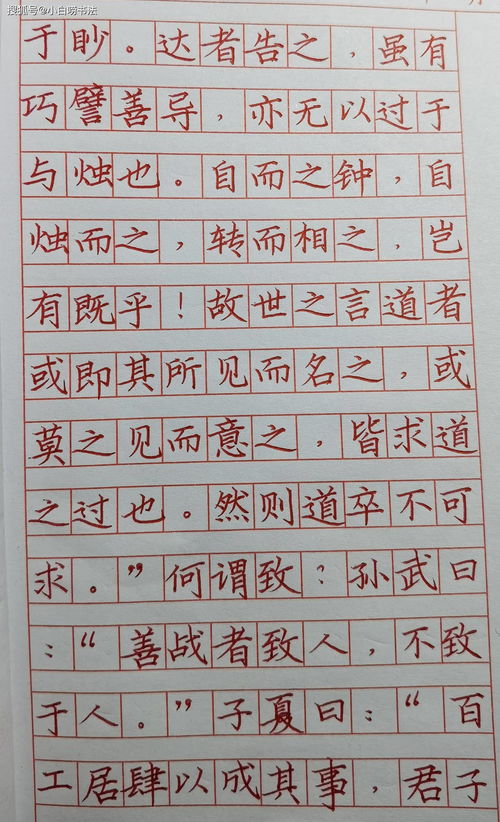 搜狐号@小白唠书法
于眇。达者告之，虽有
巧譬善导，亦无以过于
与烛也。自而之钟，自
烛而之，转而相之，岂
有既乎！故世之言道者
或即其所见而名之，或
莫之见而意之，皆求道
之过也。然则道卒不可
求。”何谓致？孙武曰
：“善战者致人，不致
于人。”子夏曰：“百
工居肆以成其事，君子